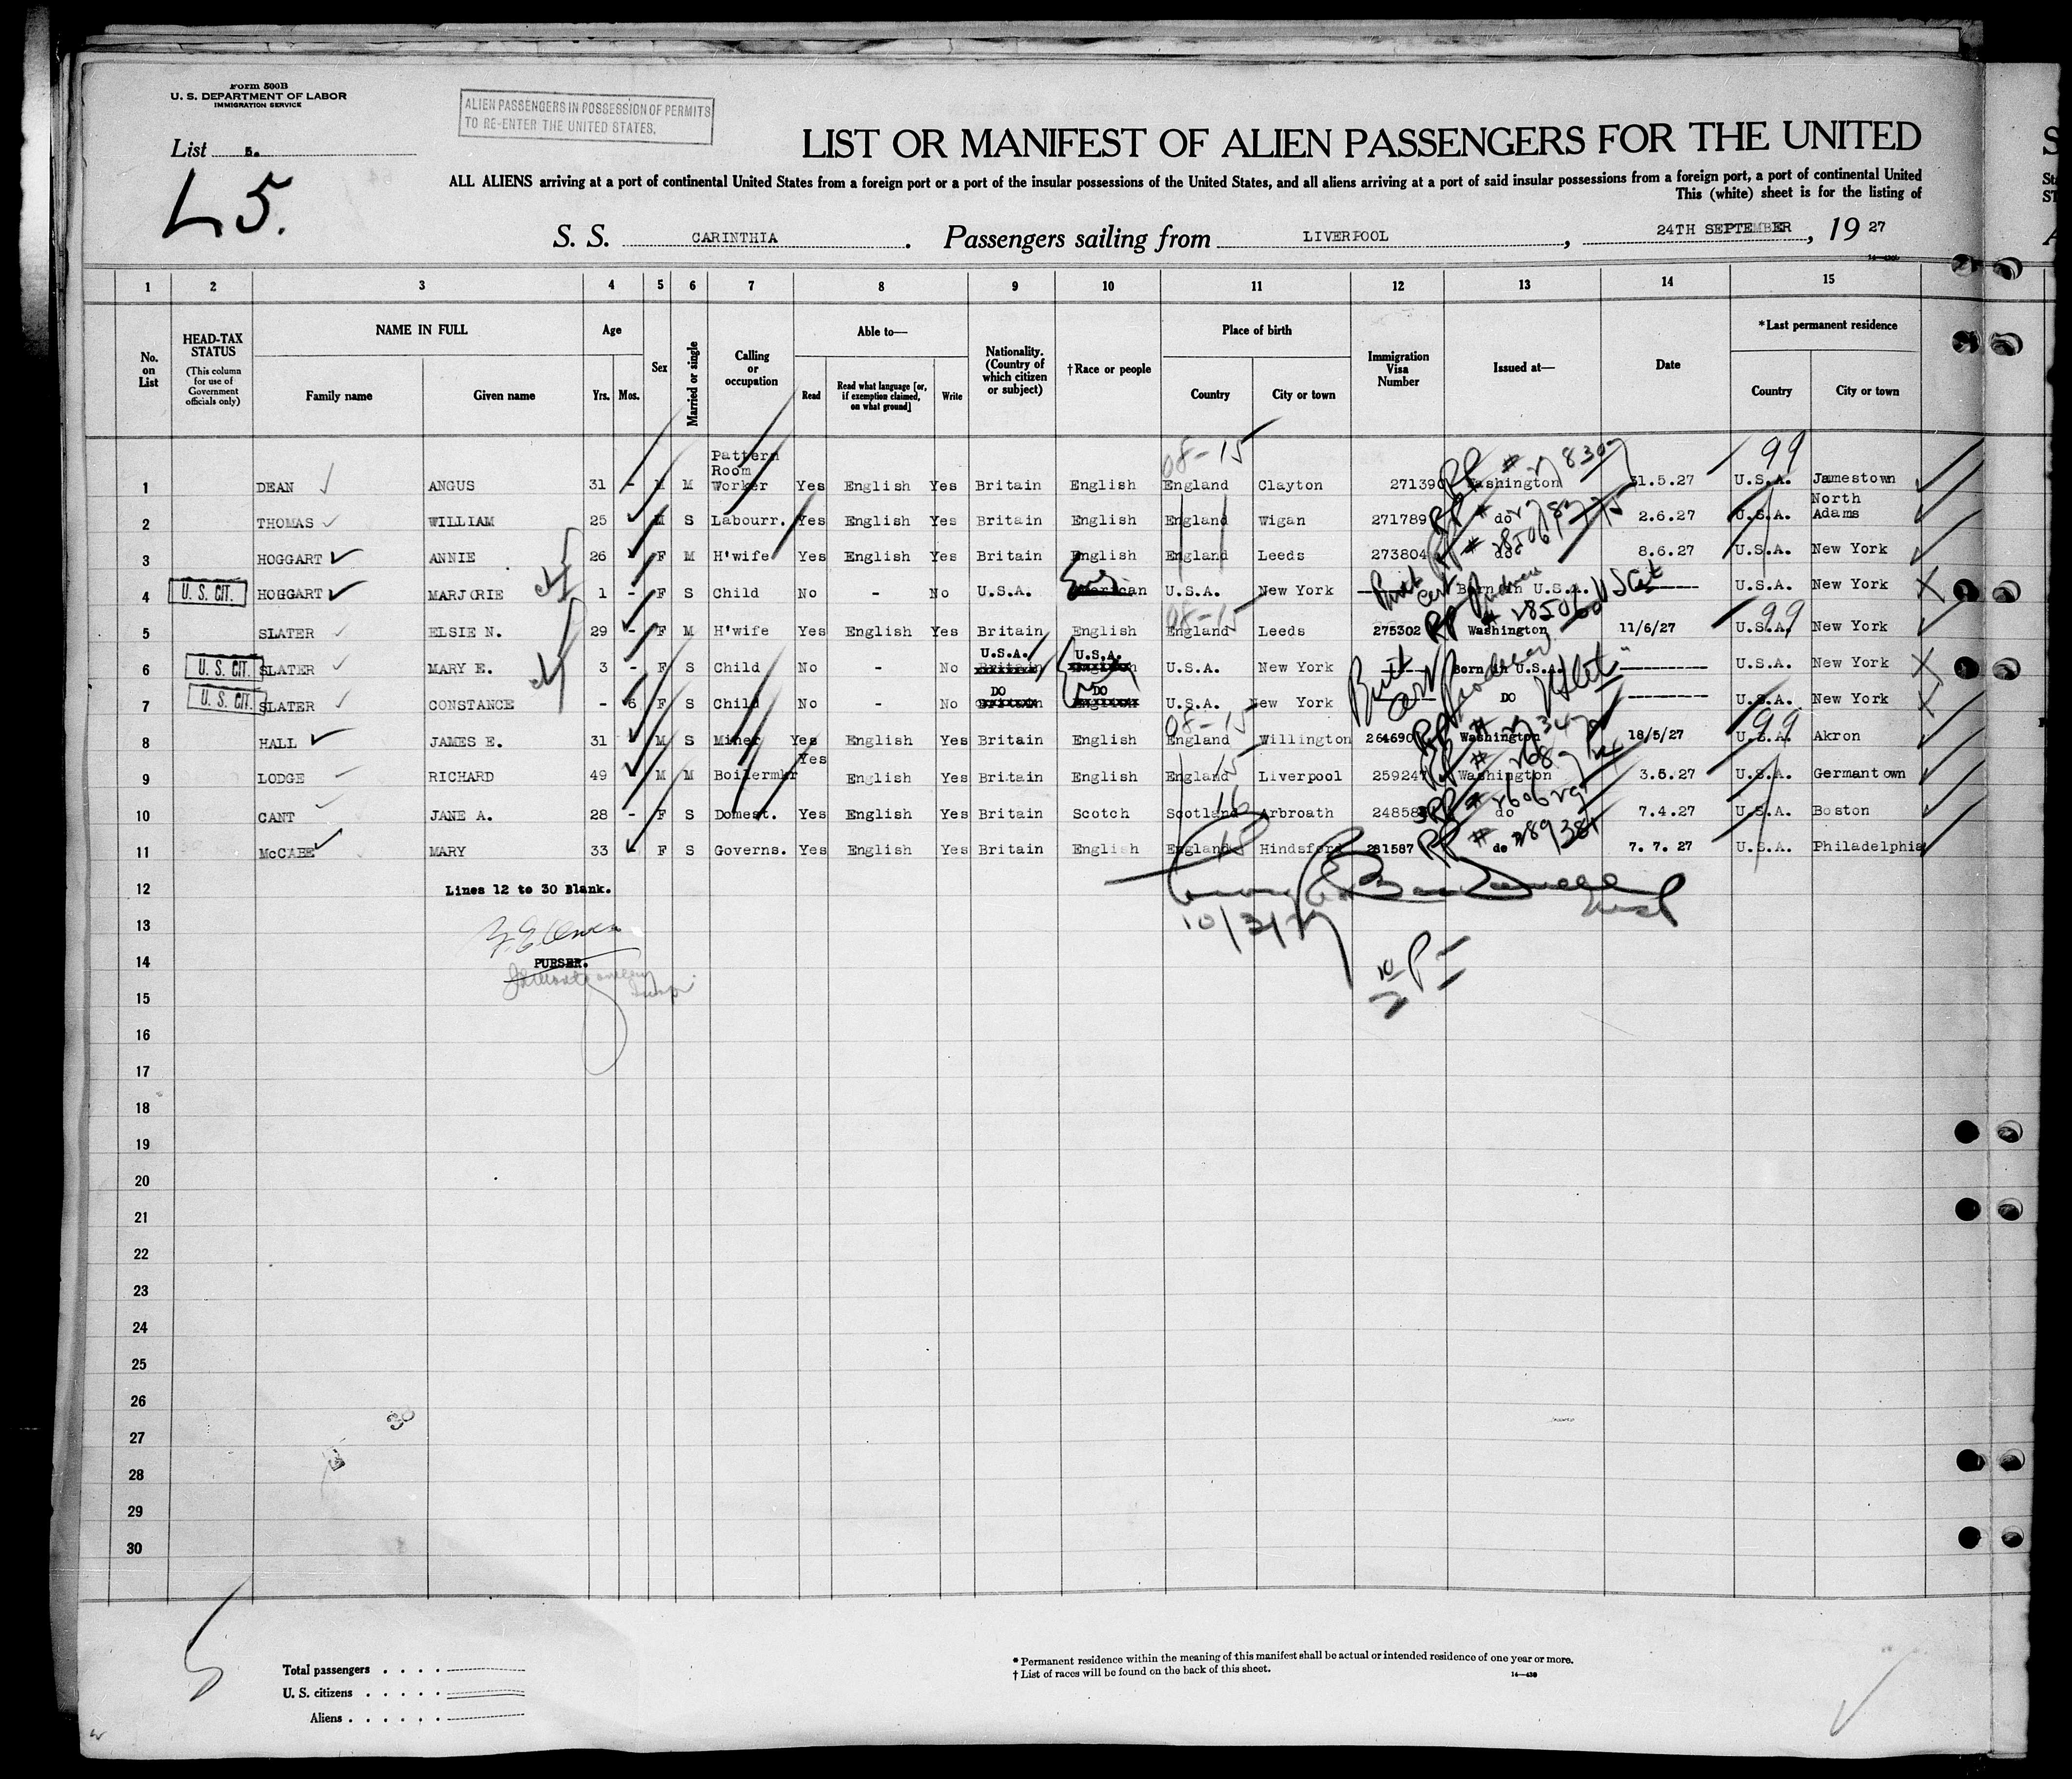 Form 500B
U. S. DEPARTMENT OF LABOR
IMMIGRATION SERVICE
ALIEN PASSENGERS IN POSSESSION OF PERMITS
TO RE-ENTER THE UNITED STATES.
List 5.
L5.
LIST OR MANIFEST OF ALIEN PASSENGERS FOR THE UNITED
ALL ALIENS arriving at a port of continental United States from a foreign port or a port of the insular possessions of the United States, and all aliens arriving at a port of said insular possessions from a foreign port, a port of continental United
This (white) sheet is for the listing of
S. S. CARINTHIA. Passengers sailing from LIVERPOOL, 24TH SEPTEMBER, 19 27
1 2 3 4 5 6 7 8 9 10 11 12 13 14 15
No. on List
HEAD-TAX STATUS (This column for use of Government officials only)
NAME IN FULL
Family name Given name
Age
Yrs. Mos.
Sex
Married or single
Calling or occupation
Able to—
Read Read what language [or, if exemption claimed, on what ground] Write
Nationality. (Country of which citizen or subject)
†Race or people
Place of birth
Country City or town
Immigration Visa Number
Issued at—
Date
*Last permanent residence
Country City or town
08-15 99
1 DEAN ANGUS 31 - M M Pattern Room Worker Yes English Yes Britain English England Clayton 271390 RP # Washington 31.5.27 U.S.A. Jamestown
2 THOMAS WILLIAM 25 M S Labourr. Yes English Yes Britain English England Wigan 271789 RP # do 2.6.27 U.S.A. North Adams
3 HOGGART ANNIE 26 F M H'wife Yes English Yes Britain English England Leeds 273804 RP # do 8.6.27 U.S.A. New York
4 U. S. CIT. HOGGART MARJORIE 1 - F S Child No - No U.S.A. American U.S.A. New York Born in U.S.A. U.S.A. New York
08-15 99
5 SLATER ELSIE N. 29 - F M H'wife Yes English Yes Britain English England Leeds 275302 RP # Washington 11/6/27 U.S.A. New York
6 U. S. CIT. SLATER MARY E. 3 - F S Child No - No U.S.A. U.S.A. U.S.A. New York Born in U.S.A. U.S.A. New York
7 U. S. CIT. SLATER CONSTANCE - 6 F S Child No - No DO DO U.S.A. New York DO U.S.A. New York
08-15 99
8 HALL JAMES E. 31 M S Miner Yes English Yes Britain English England Willington 264690 RP # Washington 18/5/27 U.S.A. Akron
9 LODGE RICHARD 49 M M Boilermkr Yes English Yes Britain English England 15 Liverpool 259247 RP # Washington 3.5.27 U.S.A. Germantown
10 CANT JANE A. 28 - F S Domest. Yes English Yes Britain Scotch Scotland 16 Arbroath RP # do 7.4.27 U.S.A. Boston
11 McCABE MARY 33 F S Governs. Yes English Yes Britain English England 15 Hindsford 281587 RP # do 7. 7. 27 U.S.A. Philadelphia
12 Lines 12 to 30 Blank.
13
10/3/27
14 PURSER.
15
16
17
18
19
20
21
22
23
24
25
26
27
28
29
30
Total passengers
U. S. citizens
Aliens
* Permanent residence within the meaning of this manifest shall be actual or intended residence of one year or more.
† List of races will be found on the back of this sheet.
14—430